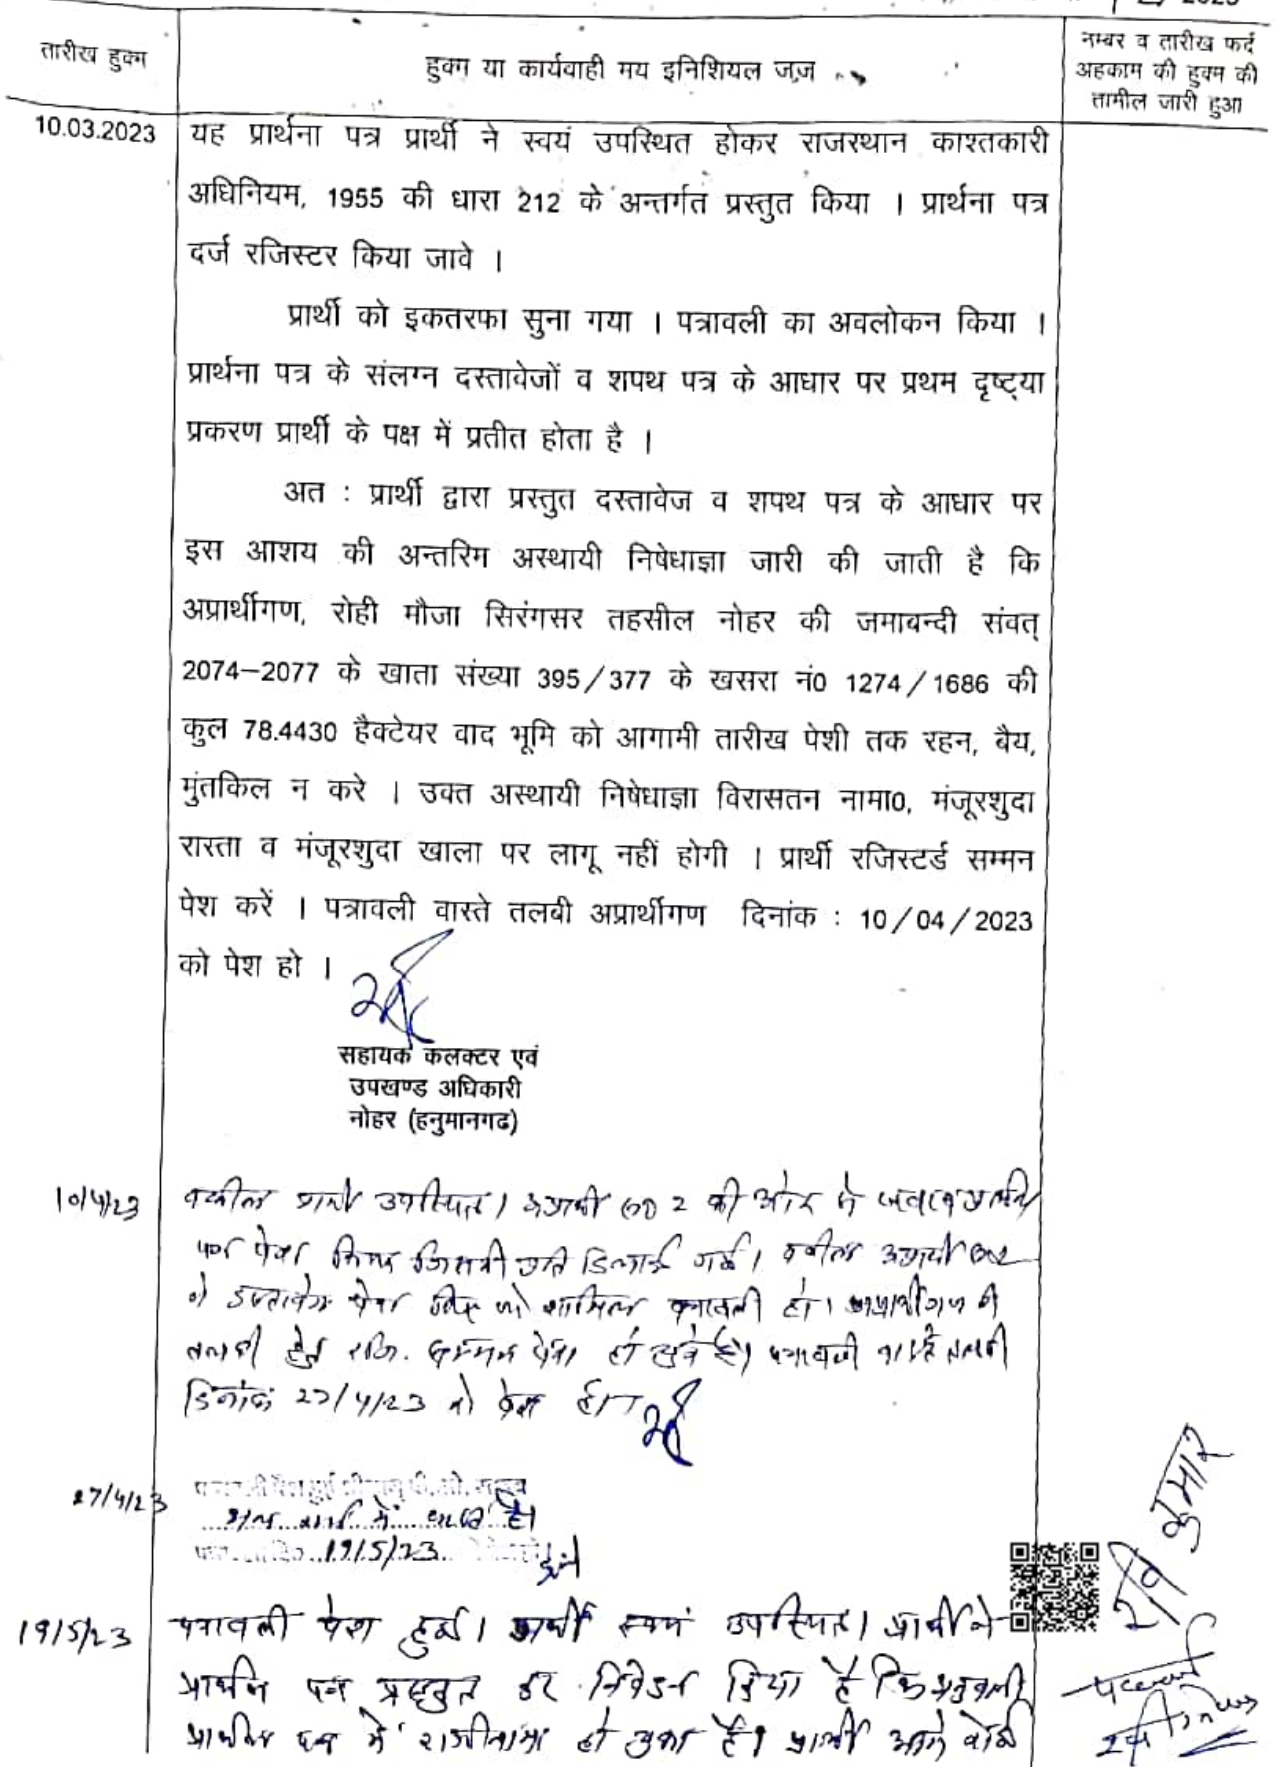 2023
तारीख हुक्म
हुक्म या कार्यवाही मय इनिशियल जज
नम्बर व तारीख फर्द
अहकाम की हुक्म की
तामील जारी हुआ
10.03.2023
यह प्रार्थना पत्र प्रार्थी ने स्वयं उपस्थित होकर राजस्थान काश्तकारी
अधिनियम, 1955 की धारा 212 के अन्तर्गत प्रस्तुत किया । प्रार्थना पत्र
दर्ज रजिस्टर किया जावे ।
प्रार्थी को इकतरफा सुना गया । पत्रावली का अवलोकन किया ।
प्रार्थना पत्र के संलग्न दस्तावेजों व शपथ पत्र के आधार पर प्रथम दृष्ट्या
प्रकरण प्रार्थी के पक्ष में प्रतीत होता है ।
अत : प्रार्थी द्वारा प्रस्तुत दस्तावेज व शपथ पत्र के आधार पर
इस आशय की अन्तरिम अस्थायी निषेधाज्ञा जारी की जाती है कि
अप्रार्थीगण, रोही मौजा सिरंगसर तहसील नोहर की जमाबन्दी संवत्
2074–2077 के खाता संख्या 395/377 के खसरा नं0 1274/1686 की
कुल 78.4430 हैक्टेयर वाद भूमि को आगामी तारीख पेशी तक रहन, बैय,
मुंतकिल न करे । उक्त अस्थायी निषेधाज्ञा विरासतन नामा0, मंजूरशुदा
रास्ता व मंजूरशुदा खाला पर लागू नहीं होगी । प्रार्थी रजिस्टर्ड सम्मन
पेश करें । पत्रावली वास्ते तलबी अप्रार्थीगण दिनांक : 10/04/2023
को पेश हो ।
सहायक कलक्टर एवं
उपखण्ड अधिकारी
नोहर (हनुमानगढ)
10/4/23
वकील प्रार्थी उपस्थित। अप्रार्थी 2 की ओर से
पत्र पेश किया जिसकी प्रति दिलाई गई। वकील अप्रार्थी
ने दस्तावेज पेश किए जो शामिल पत्रावली हो। अप्रार्थीगण की
तलबी हेतु रजि. सम्मन पेश हो चुके है। पत्रावली वास्ते तलबी
दिनांक 27/4/23 को पेश हो।
27/4/23
में है।
19/5/23
19/5/23
पत्रावली पेश हुई। प्रार्थी स्वयं उपस्थित। प्रार्थी ने
प्रार्थना पत्र प्रस्तुत कर निवेदन किया है कि
प्रार्थना पत्र में राजीनामा हो चुका है। प्रार्थी आगे कोई
कुमार